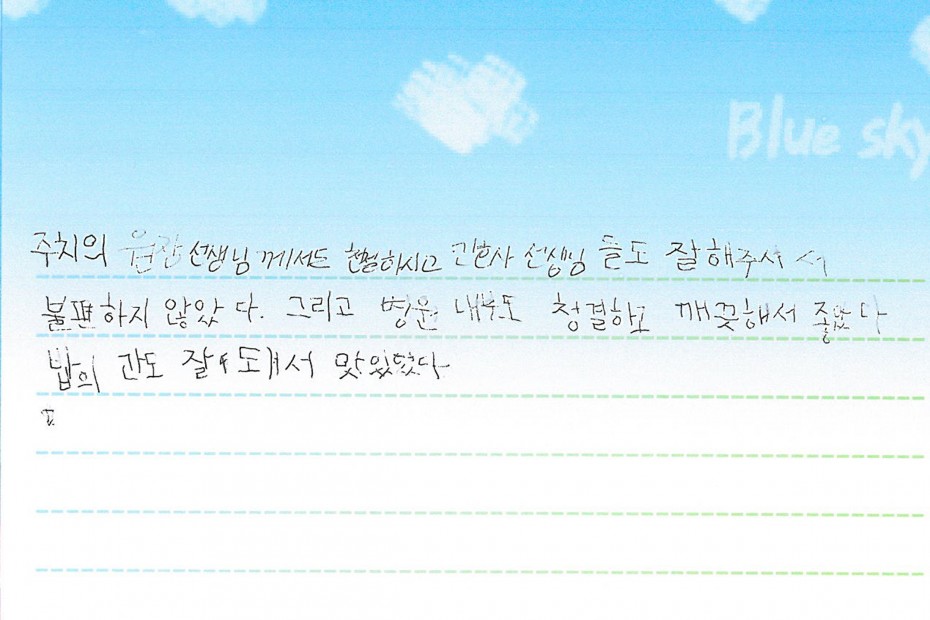 Blue sky
주치의 원장 선생님 께서도 친절하시고 간호사 선생님 들도 잘해주셔서
불편하지 않았다. 그리고 병원 내부도 청결하고 깨끗해서 좋았다
밥의 간도 잘 되서 맛있었다